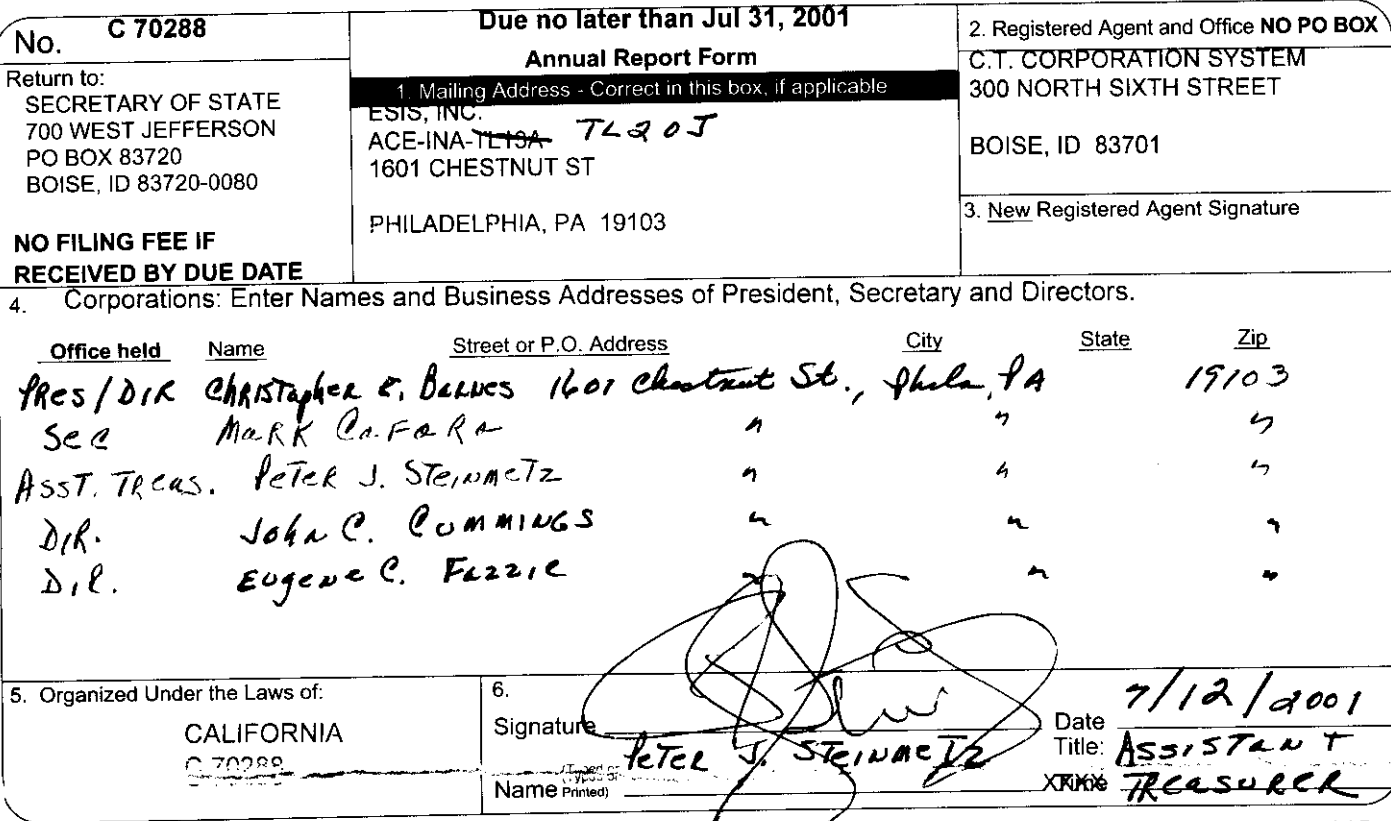 No. C 70288
Return to:
SECRETARY OF STATE
700 WEST JEFFERSON
PO BOX 83720
BOISE, ID 83720-0080
NO FILING FEE IF
RECEIVED BY DUE DATE
Due no later than Jul 31, 2001
Annual Report Form
1. Mailing Address - Correct in this box, if applicable
ESIS, INC.
ACE-INA-TL13A TL20J
1601 CHESTNUT ST
PHILADELPHIA, PA 19103
2. Registered Agent and Office NO PO BOX
C.T. CORPORATION SYSTEM
300 NORTH SIXTH STREET
BOISE, ID 83701
3. New Registered Agent Signature
4. Corporations: Enter Names and Business Addresses of President, Secretary and Directors.
Office held Name Street or P.O. Address City State Zip
Pres/DIR Christopher E. Barnes 1601 Chestnut St., Phila, PA 19103
Sec Mark Cafara " " "
Asst. Treas. Peter J. Steinmetz " " "
Dir. John C. Cummings " " "
Dir. Eugene C. Fazzie " " "
5. Organized Under the Laws of:
CALIFORNIA
C 70288
6.
Signature
Name (Typed or Printed) Peter J. Steinmetz
Date 7/12/2001
Title: Assistant
Treasurer